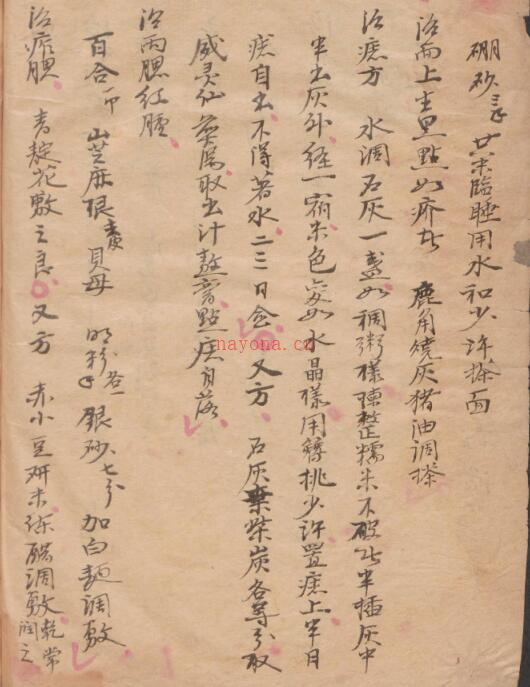 硼砂三钱 共末臨睡用水和少许搽面
治面上生黑點如疥此 鹿角燒灰猪油調搽
治痣方 水調石灰一盏如稠粥樣揀整糯米不破此半插灰中
半出灰外經一宿米色变如水晶樣用簪挑少许置痣上半日
痣自出不得著水二三日愈 又方 石灰 柴炭各等分取
威灵仙 取出汁熬膏點痣自落
治兩腮红腫
百合一 山芝麻根 貝母 明粉 银砂七分 加白麵調敷
治痄腮 青靛花敷之良 又方 赤小豆研末 醋調敷乾常潤之
nayona.cn